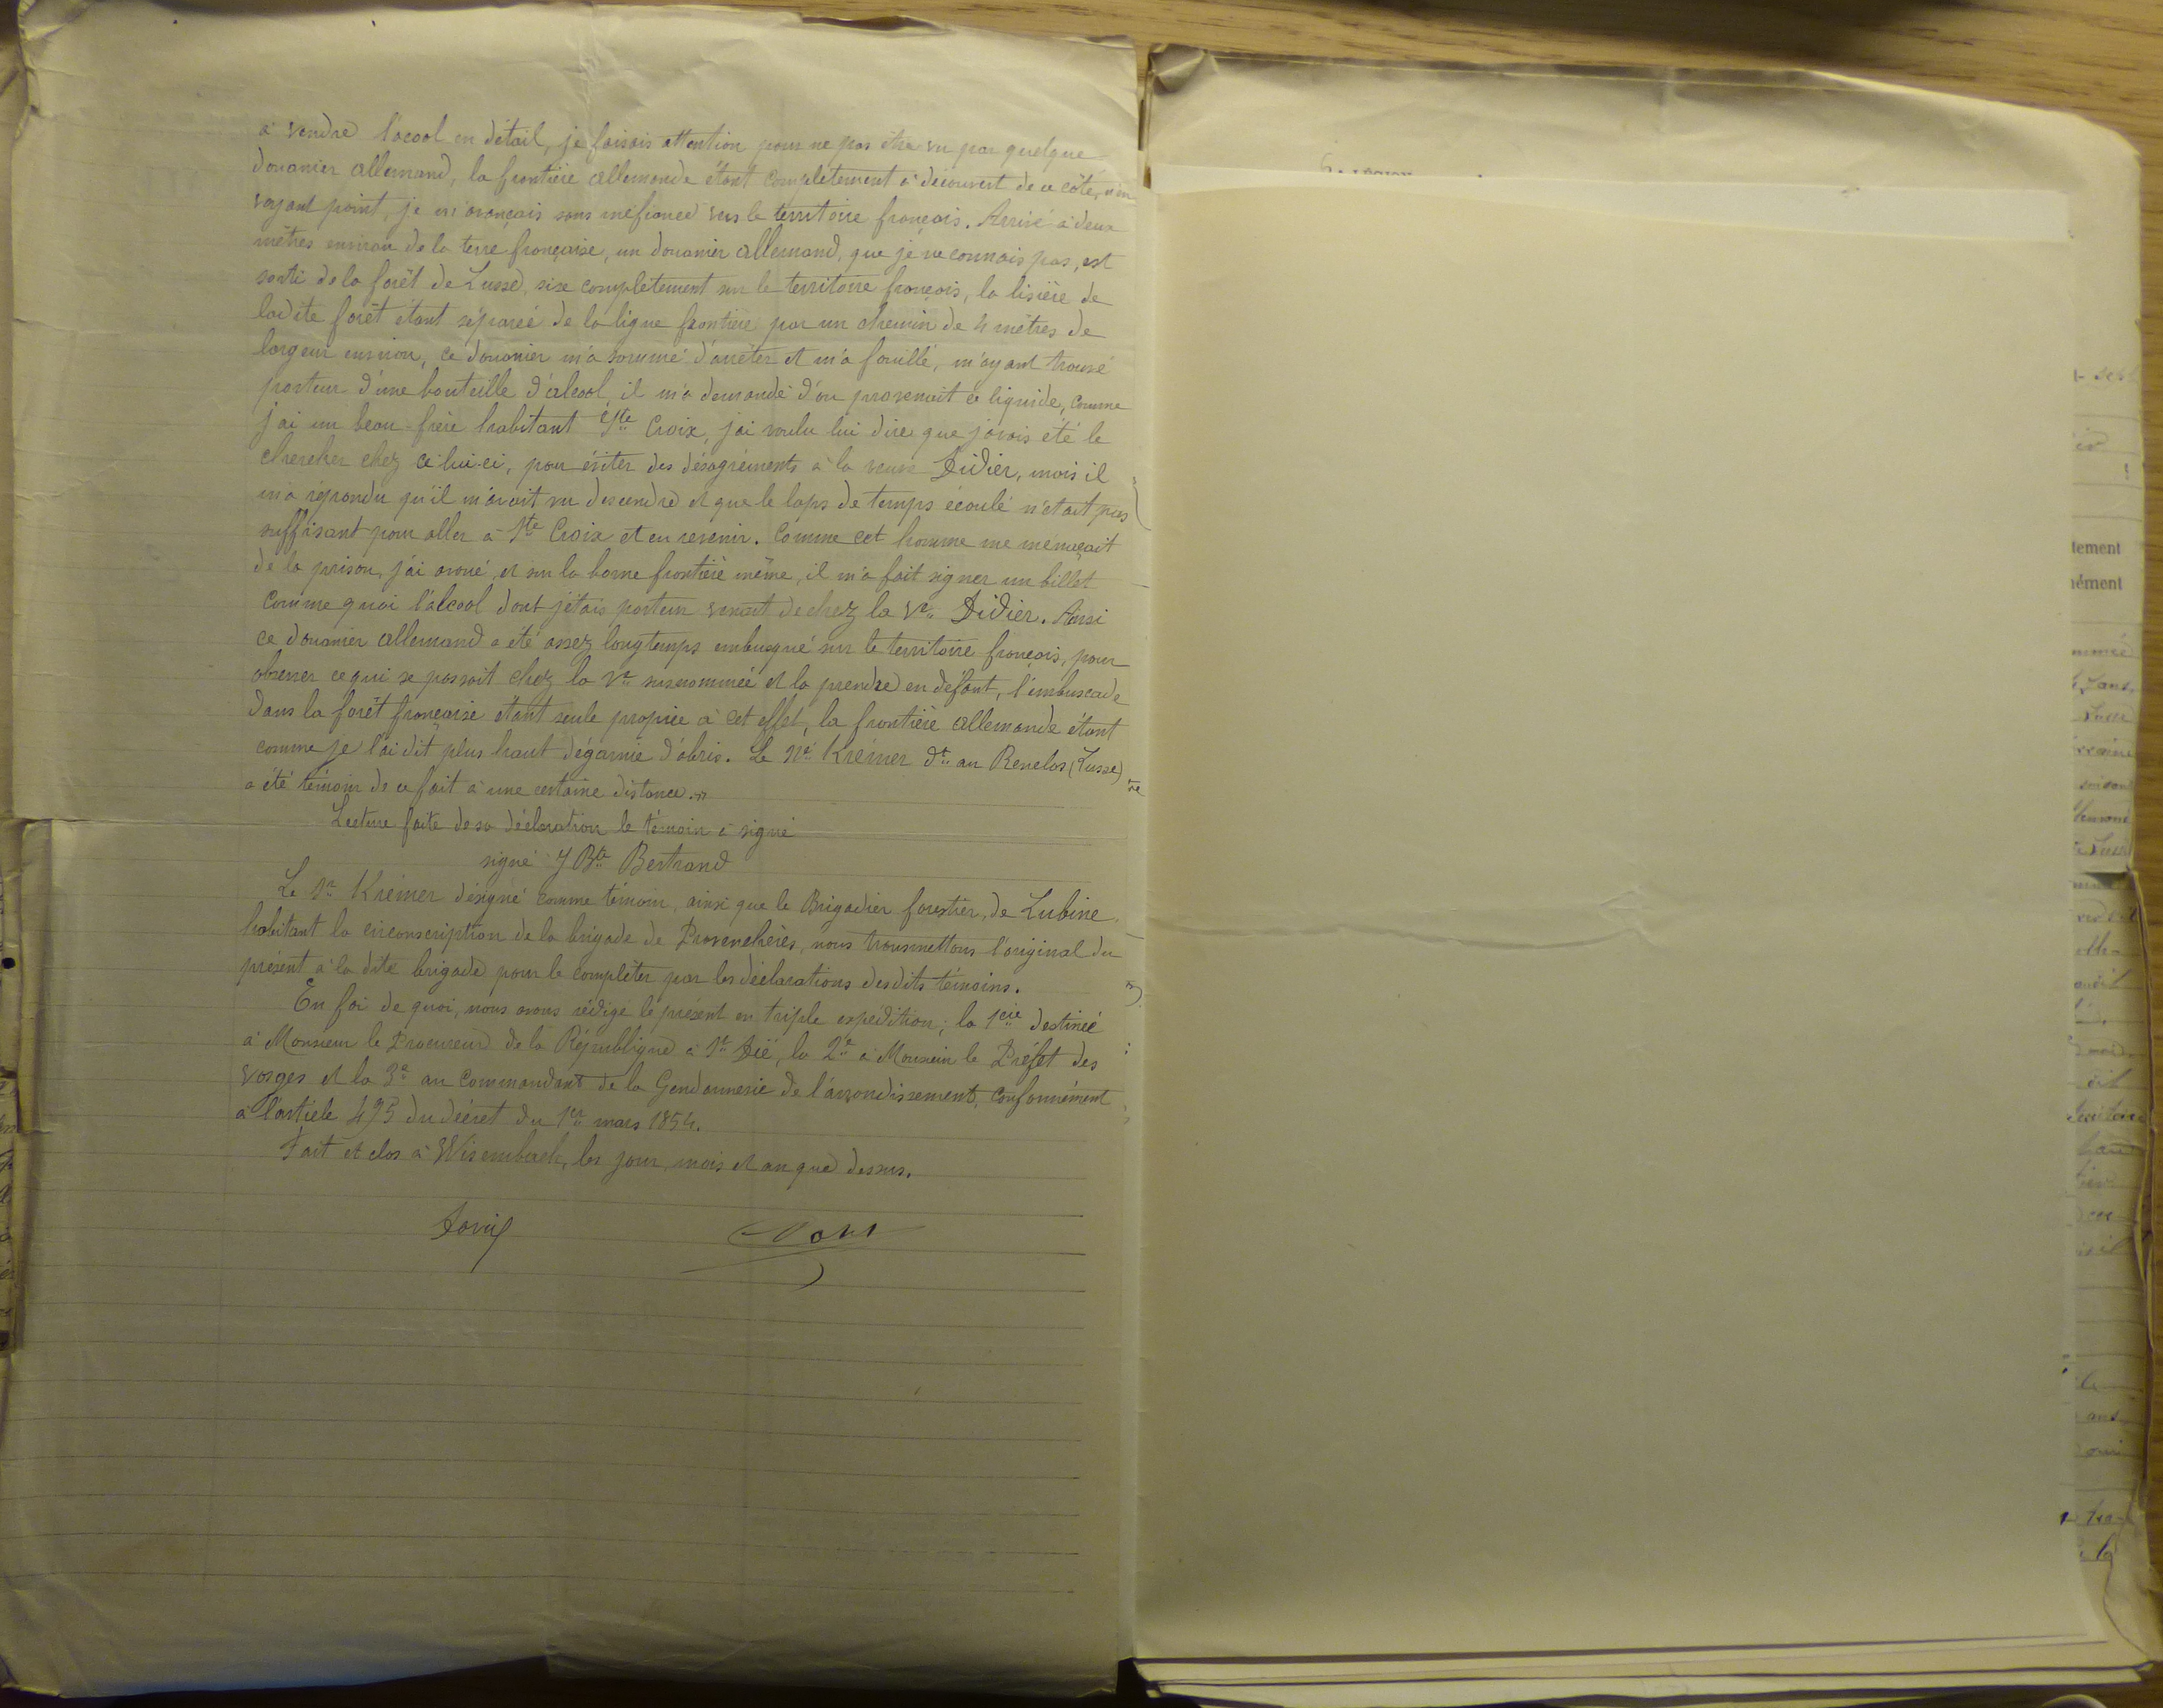 à vendre l'acool en détail, je faisais attention pour ne pas être vu par quelque
douanier allemand, la frontière allemande étant complètement à découvert de ce côté, n'en
voyant point, je m'avançais sans méfiance vers le territoire français. Arrivé à deux
mètres environ de la terre française, un douanier allemand, que je ne connais pas, est
sorti de la forêt de Lusse, sise complètement sur le territoire français, la lisière de
ladite forêt étant séparée de la ligne frontière par un chemin de 4 mètres de
largeur environ, ce douanier m'a sommé d'arrêter et m'a fouillé, m'ayant trouvé
porteur d'une bouteille d'alcool, il m'a demandé d'ou provenait ce liquide, comme
j'ai un beau-frère habitant Ste Croix, j'ai voulu lui dire que j'avais été le
chercher chez celui-ci, pour éviter des désagréments à la veuve Didier, mais il
m'a répondu qu'il m'avait vu descendre et que le laps de temps écoulé n'était pas
suffisant pour aller à Ste Croix et en revenir. Comme cet homme me menaçait
de la prison, j'ai avoué, et sur la borne frontière même, il m'a fait signer un billet
comme quoi l'alcool dont j'étais porteur venait de chez la Ve Didier. Ainsi
ce douanier allemand a été assez longtemps embusqué sur le territoire français, pour
observer ce qui se passait chez la Ve susnommée et la prendre en défaut, l'embuscade
dans la forêt française étant seule propice à cet effet, la frontière allemande étant
comme je l'ai dit plus haut dégarnie d'abris. Le Né Krémer dt au Renclos (Lusse)
a été témoin de ce fait à une certaine distance.
Lecture faite de sa déclaration le témoin a signé
signé J Bte Bertrand
Le Sr Krémer désigné comme témoin, ainsi que le Brigadier forestier, de Lubine
habitant la circonscription de la brigade de Provenchères, nous transmettons l'original du
présent à la dite brigade pour le compléter par les déclarations desdits témoins.
En foi de quoi, nous avons rédigé le présent en triple expédition; la 1ère destinée
à Monsieur le Procureur de la République à St Dié, la 2e à Monsieur le Préfet des
Vosges et la 3e au Commandant de la Gendarmerie de l'arrondissement, conformément
à l'article 495 du décret du 1er mars 1854.
Fait et clos à Wisembach, les jour, mois et an que dessus.
tement
nément